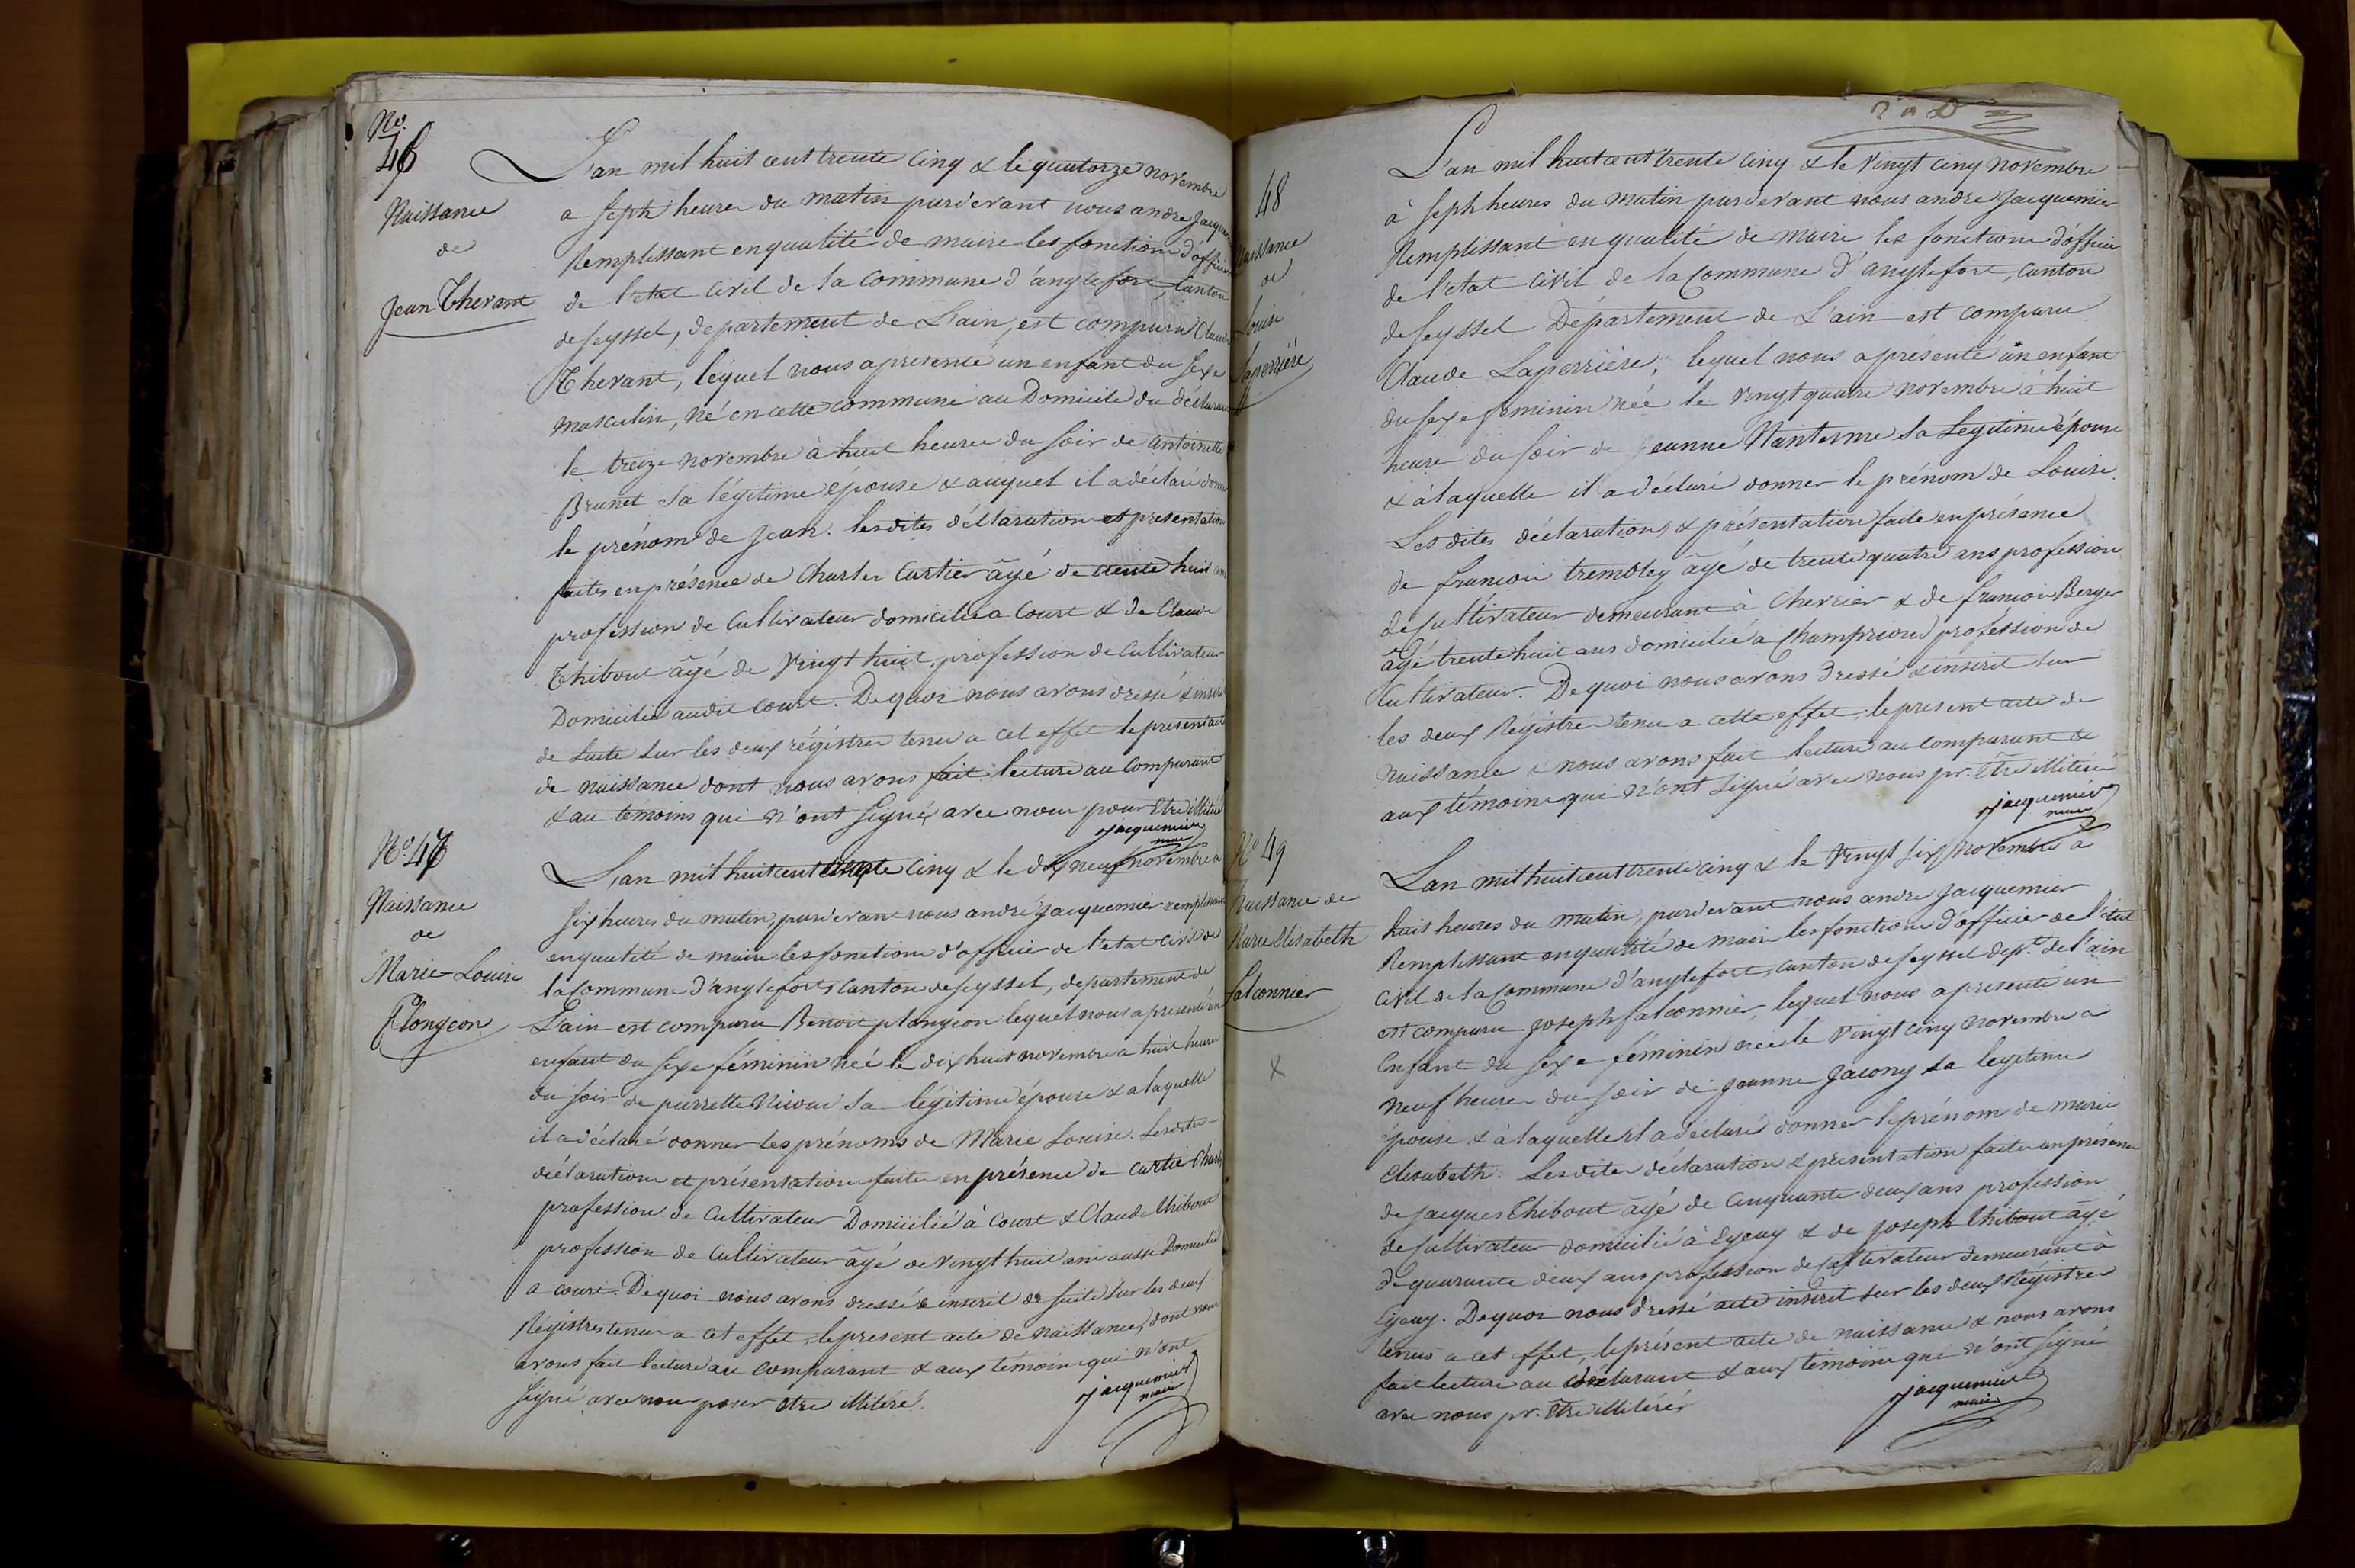 No.
46
Naissance
de
Jean Therant
L'an mil huit cent trente cinq & le quatorze novembre
a seph heures du matin pardevant nous andre Jacquemier
Remplissant enqualité de maire les fonctions d'officier
de l'etat civil de la commune d'anglefort, Canton
de seyssel, departement de L'ain, est comparu Claude
Therant, lequel nous apresenté un enfant du sexe
masculin, né en cette commune au Domicile du déclarant
le treize novembre à huit heures du soir de antoinette
Brunet sa légitime épouse & auquel il a déclaré donner
le prénom de Jean. lesdites déclaration et presentation
faites en présence de Charles Cartier âgé de trente huit ans
profession de Cultivateur domicilié a Court & de Claude
Thibout âgé de vingt huit, profession de Cultivateur
Domicilié audit Court. De quoi nous avons dressé & inscrit
de suite sur les deux régistres tenus a cet effet le present acte
de naissance dont nous avons fait lecture au Comparant
& au témoins qui n'ont signé avec nous pour être illitéré
Jacquemier
maire
No. 47
Naissance
de
Marie Louise
Plongeon
L'an mil huit cent trente cinq & le dix neuf novembre a
six heures du matin, pardevant nous andré Jacquemier remplissant
enqualité de maire les fonctions d'officier de l'etat civil de
la Commune d'anglefort, Canton de seyssel, departement de
L'ain est comparu Benoit plongeon lequel nous apresenté un
enfant du sexe féminin née le dix huit novembre a huit heures
du soir de pierrette Nicoud sa légitime épouse & a laquelle
il a déclaré donner les prénoms de Marie Louise. Lesdites
déclaration et présentation faites en présence de Cartier Charles
profession de Cultivateur Domicilié à Court & Claude Thibout
profession de Cultivateur âgé de vingt huit ans aussi Domicilié
a court. De quoi nous avons dressé & inscrit de suite sur les deux
Régistres tenus a cet effet, le present acte de naissance, dont nous
avons fait lecture au comparant & aux témoins qui n'ont
signé avec nous pour être illitéré.
Jacquemier
maire
48
Naissance
de
Louise
Laperrière
L'an mil huit cent trente cinq & le vingt cinq novembre
à seph heures du matin pardevant nous andre Jacquemier
Remplissant en qualité de maire les fonctions d'officier
de l'etat civil de la Commune d'anglefort, canton
de seyssel Département de L'ain est comparu
Claude Laperrière, lequel nous a présenté un enfant
du sexe feminin née le vingt quatre novembre à huit
heures du soir de Jeanne Nanterme sa Légitime épouse
& à laquelle il a déclaré donner le prénom de Louise.
Les dites déclaration & présentation faite en présence
de françois trembley âgé de trente quatre ans profession
de Cultivateur demeurant à Chevrier & de françois Berger
âgé trente huit ans domicilié a Champriond profession de
Cultivateur. De quoi nous avons dressé & inscrit sur
les deux Régistres tenus a cette effet, le present acte de
naissance & nous avons fait lecture au comparant &
aux témoins qui n'ont signé avec nous pr. être illitéré
Jacquemier
maire
No. 49
Naissance de
Marie Elisabeth
falconnier
L'an mil huit cent trente cinq & le vingt six novembre à
huit heures du matin, pardevant nous andre Jacquemier
Remplissant en qualité de maire les fonctions d'officier de l'état
civil de la Commune d'anglefort, canton de seyssel dept. de l'ain
est comparu joseph falconnier, lequel nous a presenté un
enfant du sexe féminin née le vingt cinq novembre a
neuf heures du soir de jeanne Jacony sa légitime
épouse & à laquelle il a déclaré donner le prénom de marie
Elisabeth. Lesdites déclaration & presentation faites en présence
de jacques Thibout âgé de cinquante deux ans profession
de Cultivateur domicilié à Eyeuy & de joseph Thibout âgé
de quarante deux ans profession de Cultivateur demeurant à
Eyeuy. De quoi nous dressé acte inscrit sur les deux Régistres
tenus a cet effet, le présent acte de naissance & nous avons
fait lecture au déclarant & aux témoins qui n'ont signé
avec nous pr. être illitérés
Jacquemier
maire